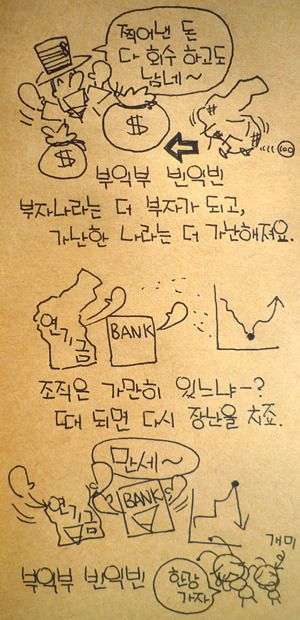 찍어낸 돈
다 회수 하고도
남네~
$
$
100
부익부 빈익빈
부자나라는 더 부자가 되고,
가난한 나라는 더 가난해져요.
연기금
BANK
조직은 가만히 있느냐-?
때 되면 다시 장난을 치죠.
만세~
연기금
BANK
개미
한강
가자
부익부 빈익빈